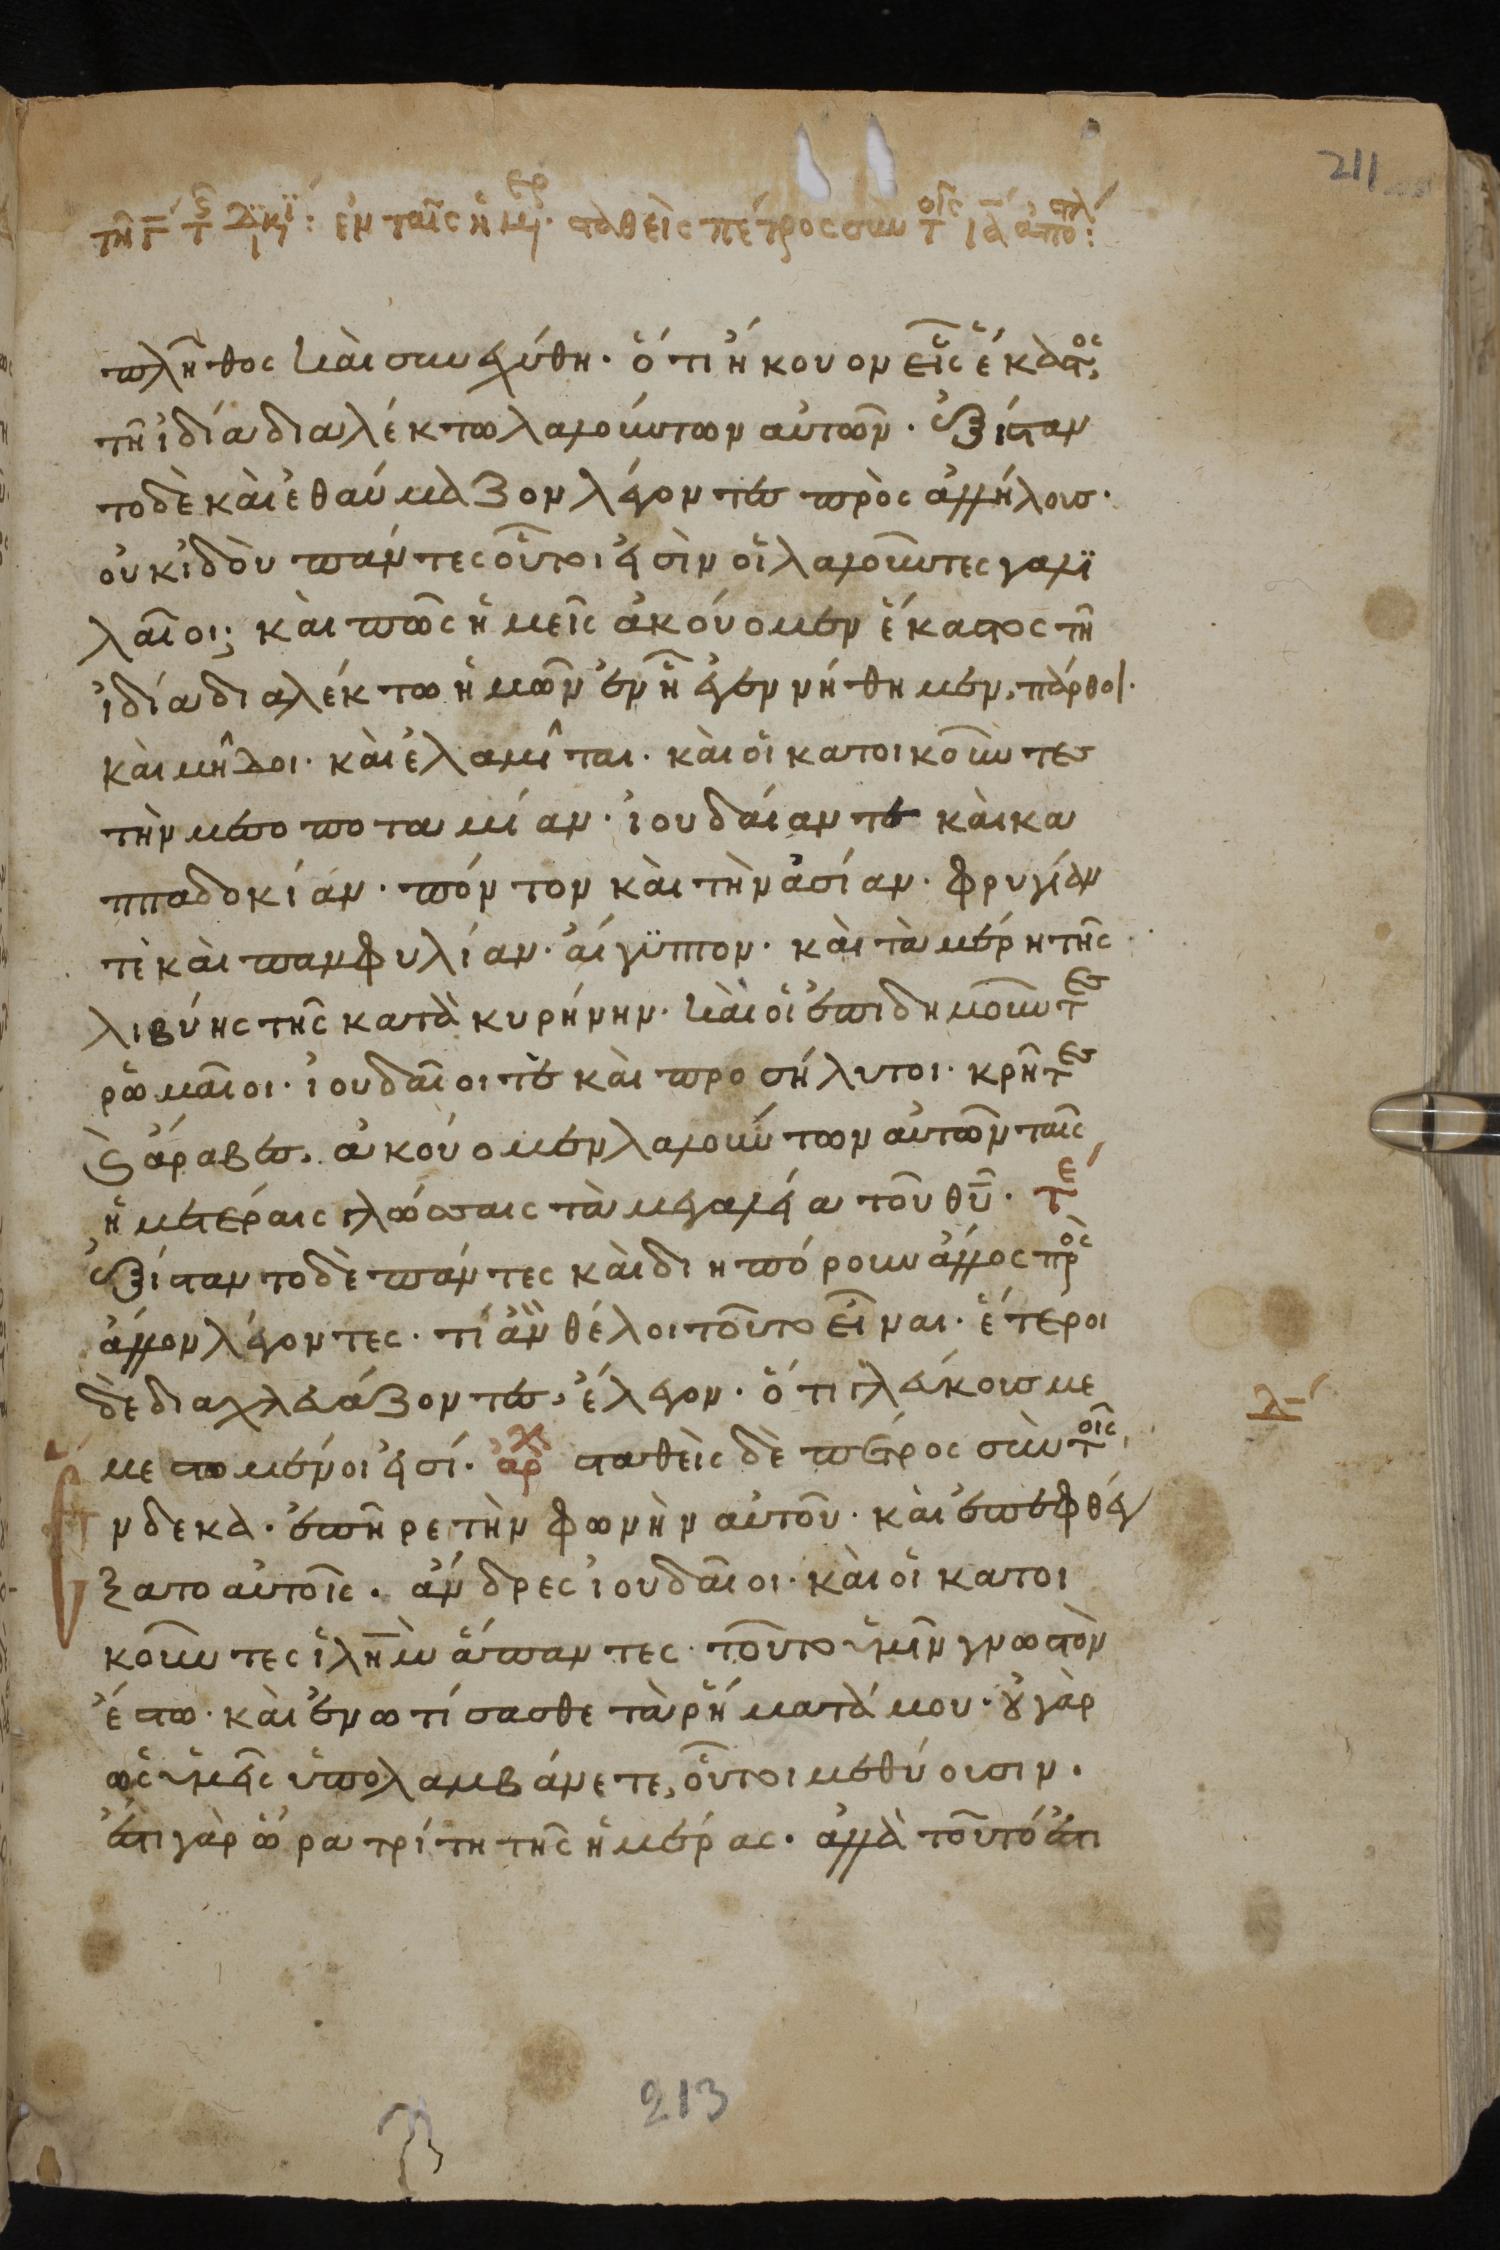 211
τῇ γ τ διακι: ἐν ταῖς ἡμέρ· σταθεὶς πέτρος σὺν τοῖς ια ἀποστόλ:
πλῆθος καὶ συνεχύθη· ὅτι ἤκουον εἷς ἕκαστος
τῆ ἰδία διαλέκτω λαλούντων αὐτῶν· ἐξίσταν
το δὲ καὶ ἐθαύμαζον λέγοντες πρὸς ἀλλήλους·
οὐκ ἰδοὺ πάντες οὗτοι εἰσὶν οἱ λαλοῦντες γαλι
λαῖοι; καὶ πῶς ἡμεῖς ἀκούομεν ἕκαστος τῆ
ἰδία διαλέκτω ἡμῶν ἐν ἧ ἐγεννήθημεν, πάρθοι·
καὶ μῆδοι· καὶ ἐλαμῖται· καὶ οἱ κατοικοῦντες
τὴν μεσοποταμίαν· ἰουδαίαν τε καὶ κα
ππαδοκίαν· πόντον καὶ τὴν ἀσίαν· φρυγίαν
τὲ καὶ παμφυλίαν· αἴγυπτον· καὶ τὰ μέρη τῆς
λιβύης τῆς κατὰ κυρήνην· καὶ οἱ ἐπιδημοῦντες
ῥωμαῖοι· ἰουδαῖοι τὲ καὶ προσήλυτοι· κρῆτες
ϗ ἄραβες, ἀκούομεν λαλούντων αὐτῶν ταῖς
ἡμετέραις γλώσσαις τὰ μεγαλεῖα τοῦ θῦ· τε
ἐξίσταντο δὲ πάντες καὶ διηπόρουν ἄλλος πρὸς
ἄλλον λέγοντες· τί ἂν θέλοι τοῦτο εἶναι· ἕτεροι
δὲ διαχλευάζοντες, ἔλεγον· ὅτι γλεύκους με
μεστωμένοι εἰσί· ἀρχ σταθεὶς δὲ πέτρος σὺν τοῖς
νδεκα· ἐπῆρε τὴν φωνὴν αὐτοῦ· καὶ ἀπεφθέγ
ξατο αὐτοῖς· ἄνδρες ἰουδαῖοι· καὶ οἱ κατοι
κοῦντες ἱλημ ἅπαντες· τοῦτο ὑμῖν γνωστὸν
ἔστω· καὶ ἐνωτίσασθε τὰ ῥήματά μου· οὐ γὰρ
ὡς ὑμεῖς ὑπολαμβάνετε, οὗτοι μεθύουσιν·
ἔστι γὰρ ὥρα τρίτη τῆς ἡμέρας· ἀλλὰ τοῦτό ἐστι
213